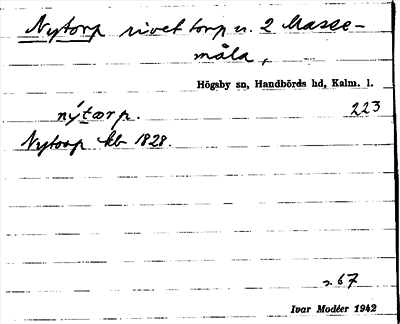 Nytorp rivet torp u. 2 Masse-
måla,
Högsby sn, Handbörds hd, Kalm. l.
nýtærp. 223
Nytorp kb 1828.
s. 67
Ivar Modéer 1942